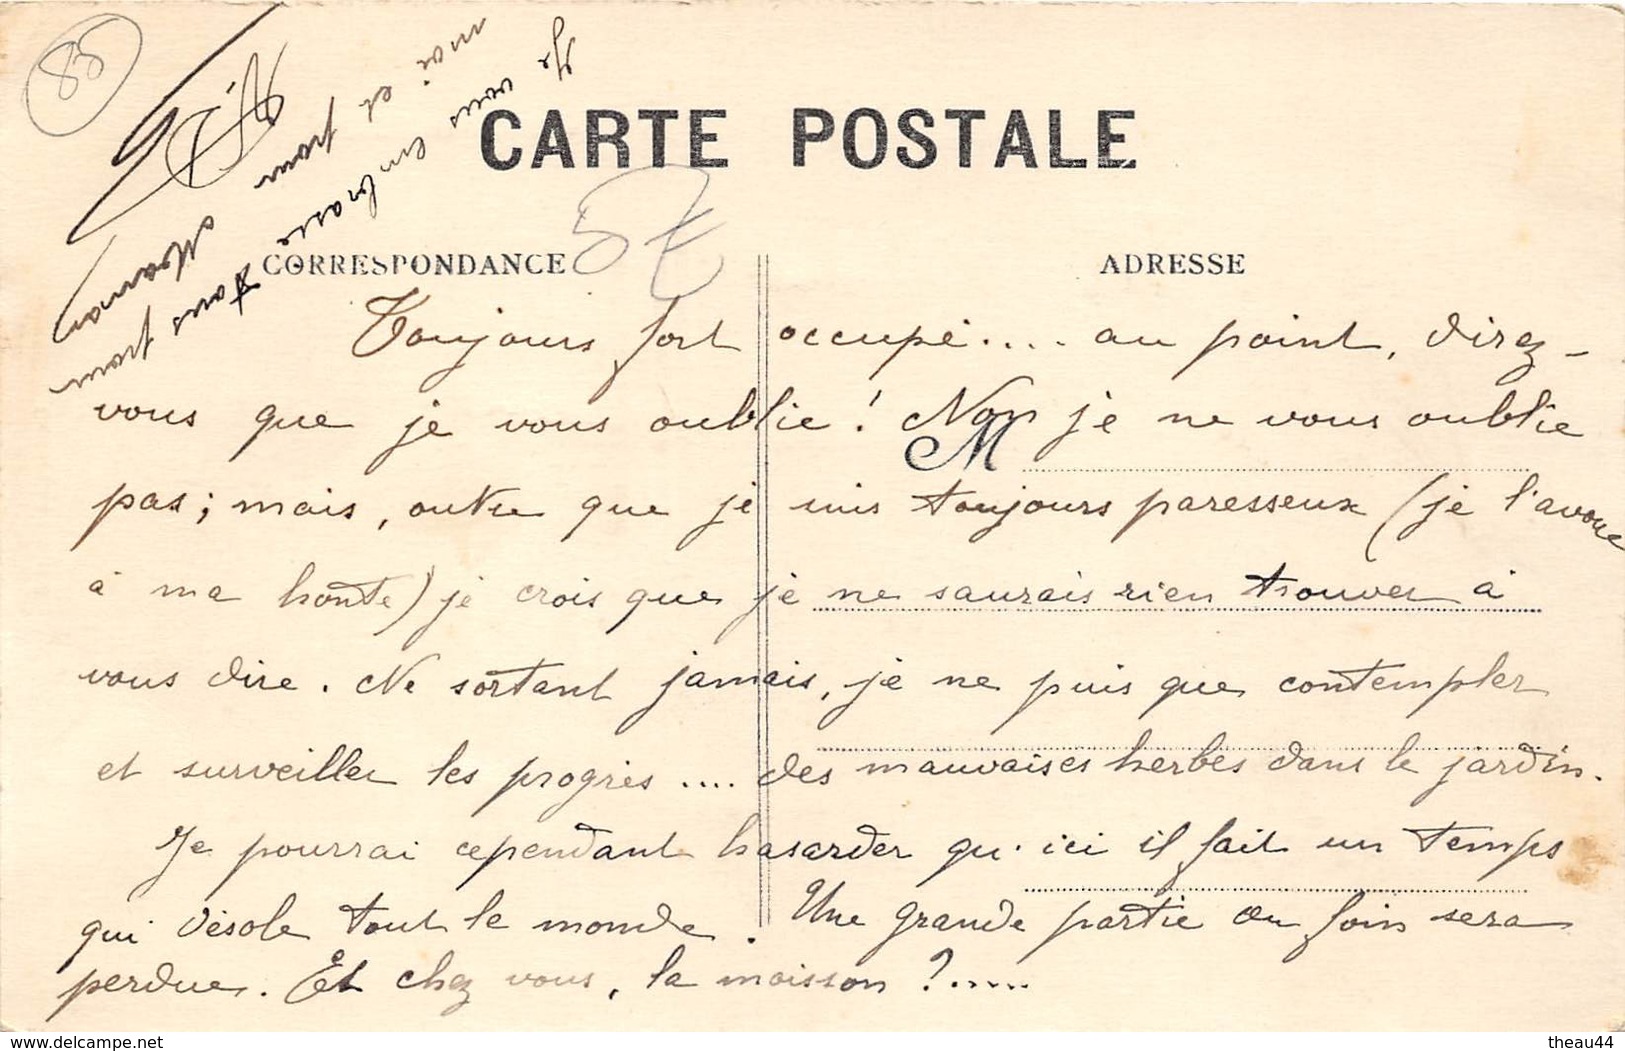 85
CARTE POSTALE
5 F
CORRESPONDANCE
ADRESSE
M
Toujours fort occupé.... au point, direz-
vous que je vous oublie ! Non je ne vous oublie
pas ; mais, outre que je suis toujours paresseux (je l'avoue
à ma honte) je crois que je ne saurais rien trouver à
vous dire. Ne sortant jamais, je ne puis que contempler
et surveiller les progrès .... des mauvaises herbes dans le jardin.
Je pourrai cependant hasarder qu'ici il fait un temps
qui désole tout le monde. Une grande partie du foin sera
perdue. Et chez vous, la moisson ?.....
Je vous embrasse tous pour
moi et pour Maman
www.delcampe.net
theau44